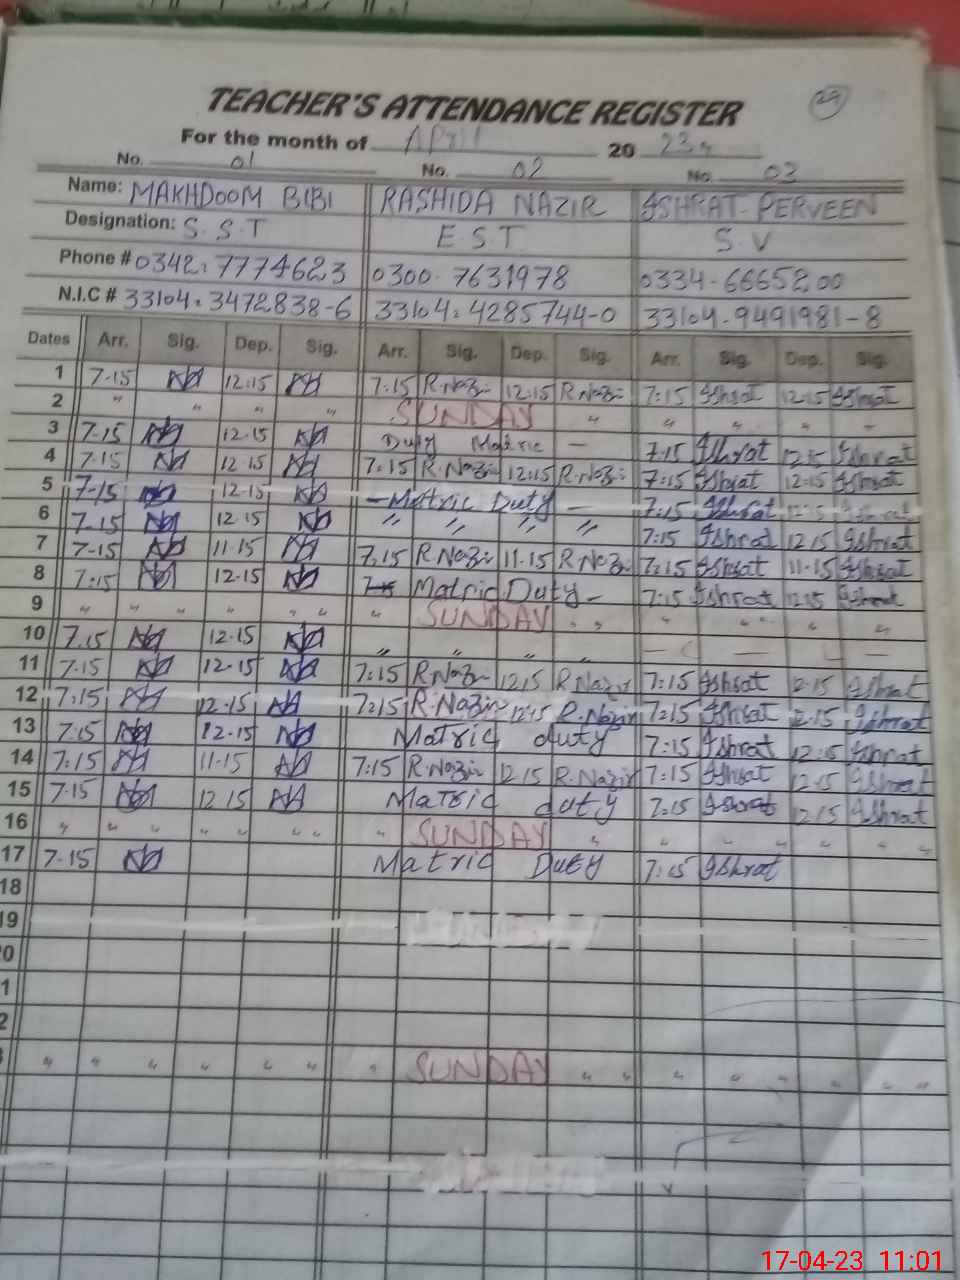 TEACHER'S ATTENDANCE REGISTER 29
For the month of April 20 23
No. 01 No. 02 No. 03
Name: MAKHDOOM BIBI RASHIDA NAZIR ISHRAT PERVEEN
Designation: S.S.T E S T S.V
Phone # 0342.7774623 0300.7631978 0334-6665200
N.I.C # 33104.3472838-6 33104.4285744-0 33104-9491981-8
Dates Arr. Sig. Dep. Sig. Arr. Sig. Dep. Sig. Arr. Sig. Dep. Sig.
1 7-15 12:15 7:15 R.Nazi 12:15 R.Nazi 7:15 Ishrat 12:15 Ishrat
2 " " " " SUNDAY " " " " "
3 7-15 12.15 Duty Matric — 7:15 Ishrat 12:15 Ishrat
4 7.15 12.15 7:15 R.Nazi 12:15 R.Nazi 7:15 Ishrat 12:15 Ishrat
5 7-15 12-15 — Matric Duty — 7:15 Ishrat 12:15 Ishrat
6 7-15 12.15 " " " " 7:15 Ishrat 12:15 Ishrat
7 7-15 11-15 7:15 R.Nazi 11.15 R.Nazi 7:15 Ishrat 11-15 Ishrat
8 7:15 12.15 Matric Duty — 7:15 Ishrat 12:15 Ishrat
9 " " " " " " SUNDAY " " " " "
10 7.15 12.15 " " " " — —
11 7.15 12.15 7:15 R.Nazi 12:15 R.Nazir 7:15 Ishrat 12-15 Ishrat
12 7:15 12.15 7:15 R.Nazir 12:15 R.Nazir 7:15 Ishrat 12-15 Ishrat
13 7.15 12.15 Matric duty 7:15 Ishrat 12:15 Ishrat
14 7:15 11-15 7:15 R.Nazir 12:15 R.Nazir 7:15 Ishrat 12-15 Ishrat
15 7.15 12.15 Matric duty 7:15 Ishrat 12:15 Ishrat
16 " " " " " " SUNDAY " " " " " "
17 7.15 Matric Duty 7:15 Ishrat
18
19
20
1
2
" " " " " " SUNDAY " " " " " " "
17-04-23 11:01